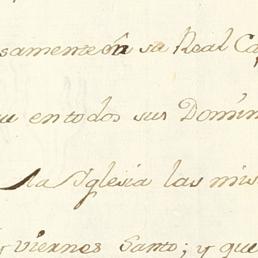 samente en su Real Ca
u en todos sus Domin
la Iglesia las mis
y viernes Santo; y que